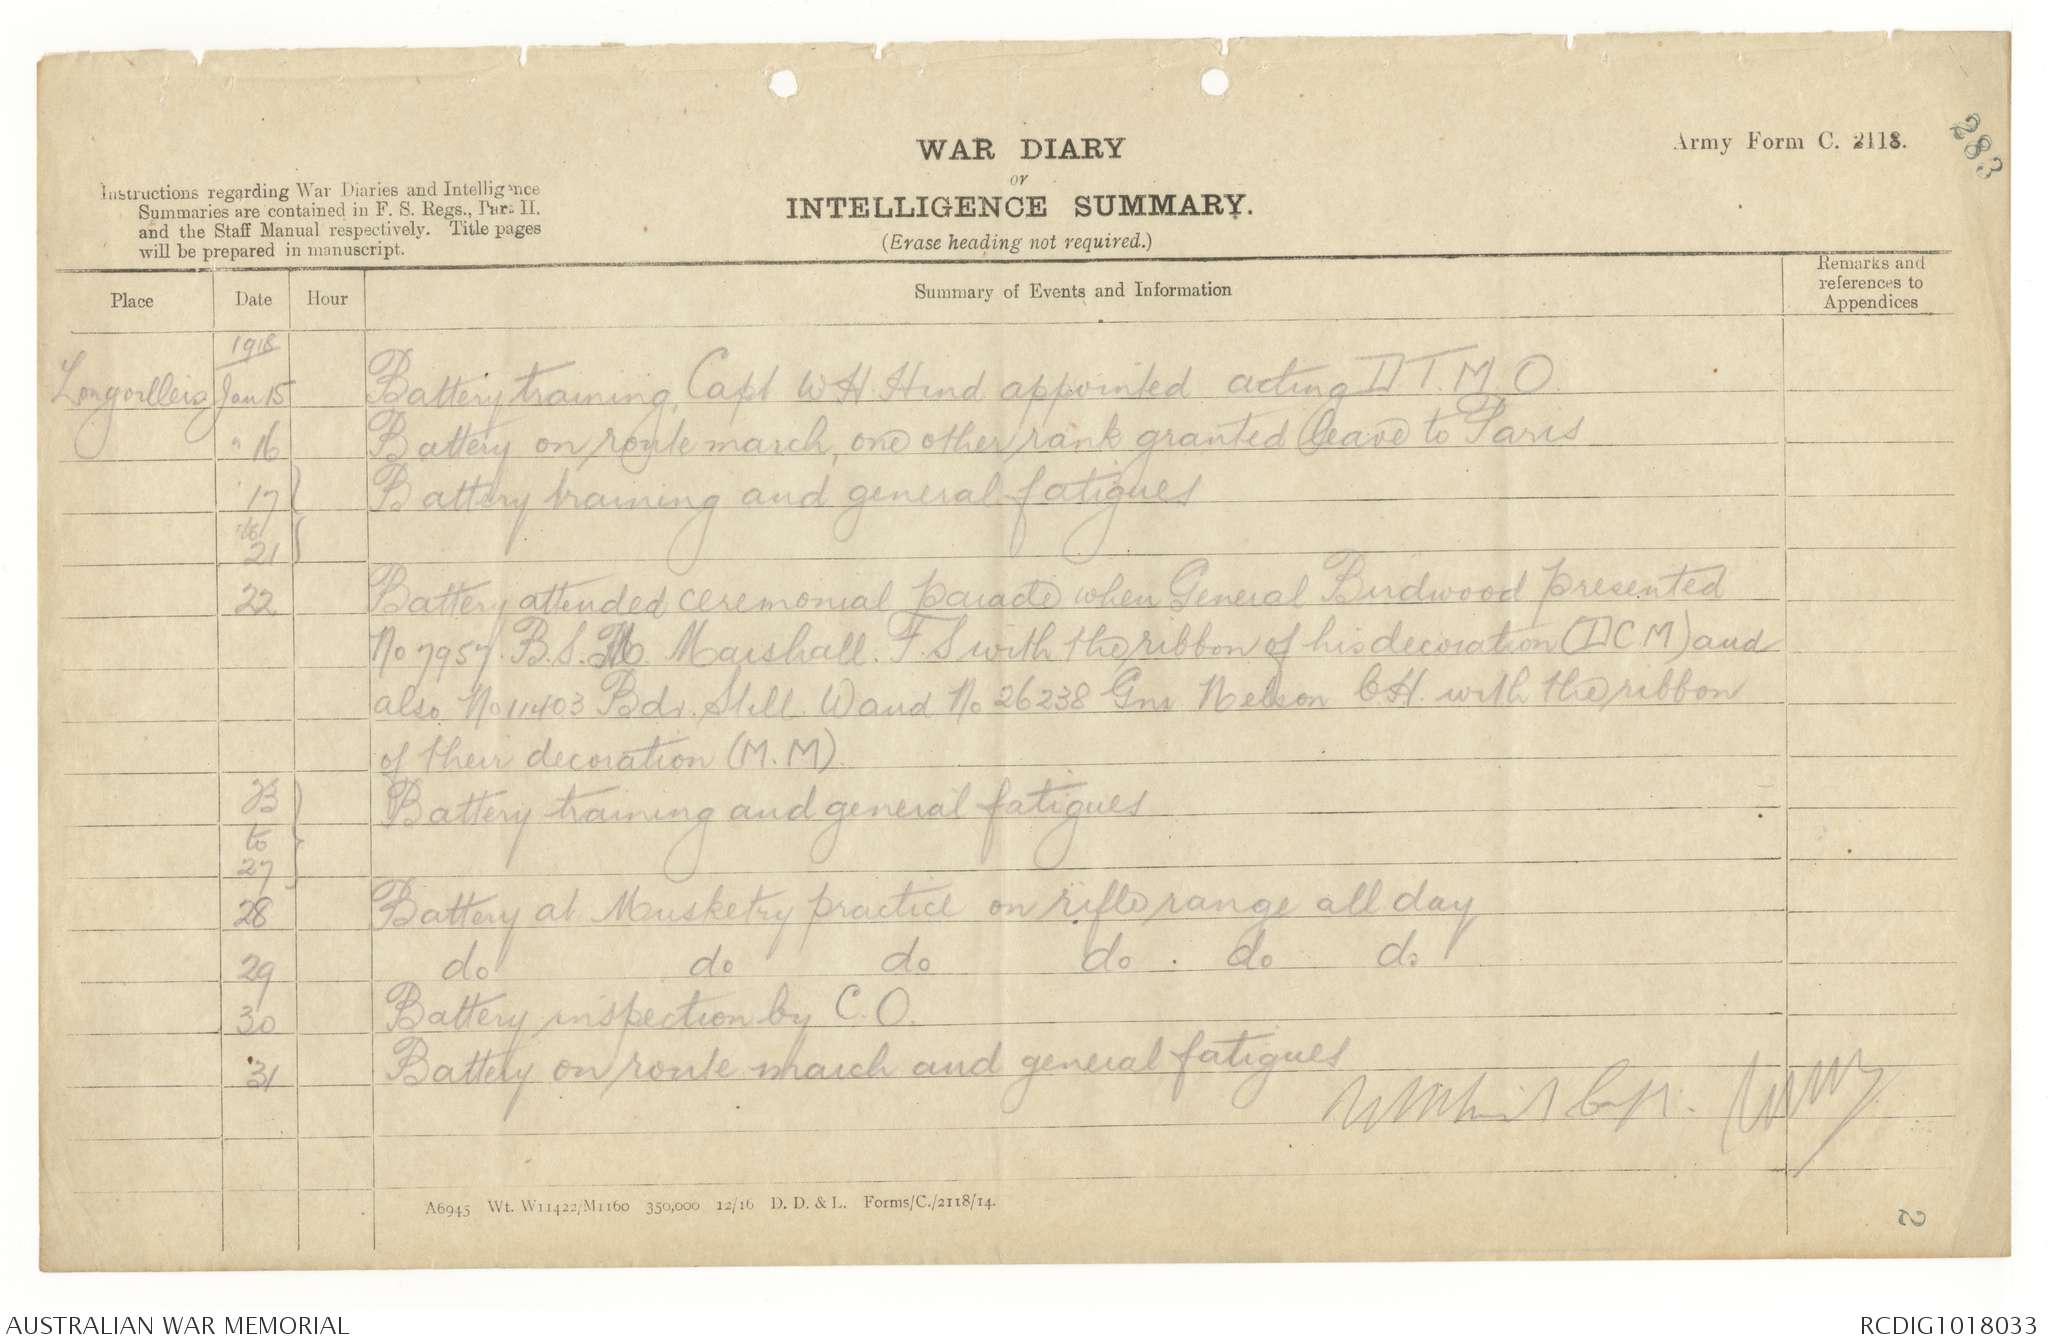 283
Army Form C. 2118.
WAR DIARY
or
INTELLIGENCE SUMMARY.
(Erase heading not required.)
Instructions regarding War Diaries and Intelligence
Summaries are contained in F. S. Regs., Part II.
and the Staff Manual respectively. Title pages
will be prepared in manuscript.
Place Date Hour Summary of Events and Information Remarks and references to Appendices
1918
Jan 15 Battery training, Capt W H Hind appointed acting D T. M. O.
" 16 Battery on route march, one other rank granted leave to Paris
" 17 Battery training and general fatigues
to
21
22 Battery attended ceremonial parade when General Birdwood presented
No 7957. B.S.M. Marshall. F. S with the ribbon of his decoration (D C. M) and
also No 11403 Bdr. Still. W and No 26238 Gnr Nelson C.H. with the ribbon
of their decoration (M. M).
23 Battery training and general fatigues
to
27
28 Battery at Musketry practice on rifle range all day
29 do do do do . do do
30 Battery inspection by C. O.
31 Battery on route march and general fatigues
WHHind Capt.
A6945 Wt. W11422/M1160 350,000 12/16 D. D. & L. Forms/C./2118/14.
2
AUSTRALIAN WAR MEMORIAL RCDIG1018033